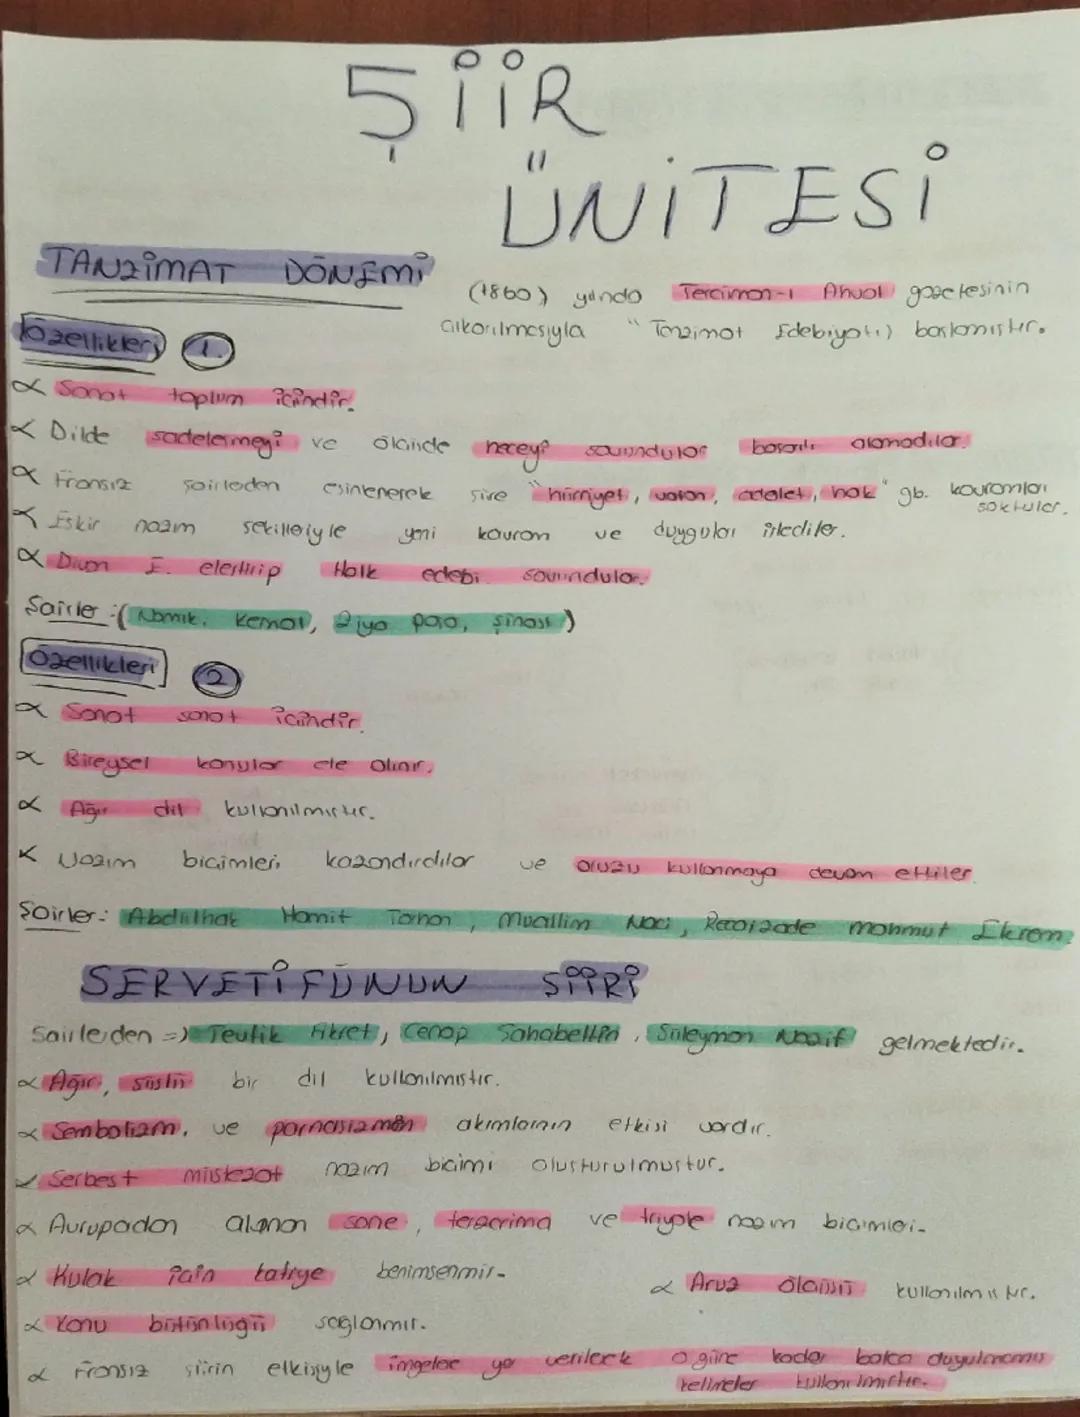 ŞİİR
ÜNİTESİ
TANZİMAT DÖNEMİ
(1860) yılında Tercüman-ı Ahval gazetesinin
çıkarılmasıyla "Tanzimat Edebiyatı) başlamıştır.
Özellikleri 1.
α Sanat toplum içindir.
α Dilde sadeleşmeyi ve ölçüde heceyi savundular başarılı olamadılar.
α Fransız şairleden esinlenerek şiire "hürriyet, vatan, adalet, hak" gb. kavramlar
soktular.
α Eskir nazım şekilleriyle yeni kavram ve duyguları işlediler.
α Divan E. eleştirip Halk edebi savundular.
Şairler :( Namık. Kemal, Ziya paşa, şinasi )
Özellikleri 2
α Sanat sanat içindir.
α Bireysel konular ele alınır.
α Ağır dil kullanılmıştır.
α Nazım biçimleri kazandırdılar ve aruzu kullanmaya devam ettiler.
Şairler: Abdülhak Hamit Tarhan, Muallim Naci, Recaizade mahmut Ekrem.
SERVETİFÜNUN ŞİİRİ
Şairleden => Tevfik Fikret, Cenap Şahabettin, Süleyman Nazif gelmektedir.
α Ağır, süslü bir dil kullanılmıştır.
α Sembolizm. ve parnasizmin akımlarının etkisi vardır.
α Serbest müstezat nazım biçimi oluşturulmuştur.
α Avrupadan alınan sone, terzarima ve triyole nazım biçimleri-
α Kulak için kafiye benimsenmiş-
α Aruz ölçüsü kullanılmıştır.
α Konu bütünlüğü sağlanmış.
α Fransız şiirin etkisiyle imgelere yer verilerek o güne kadar batıca duyulmamış
kelimeler kullanılmıştır.